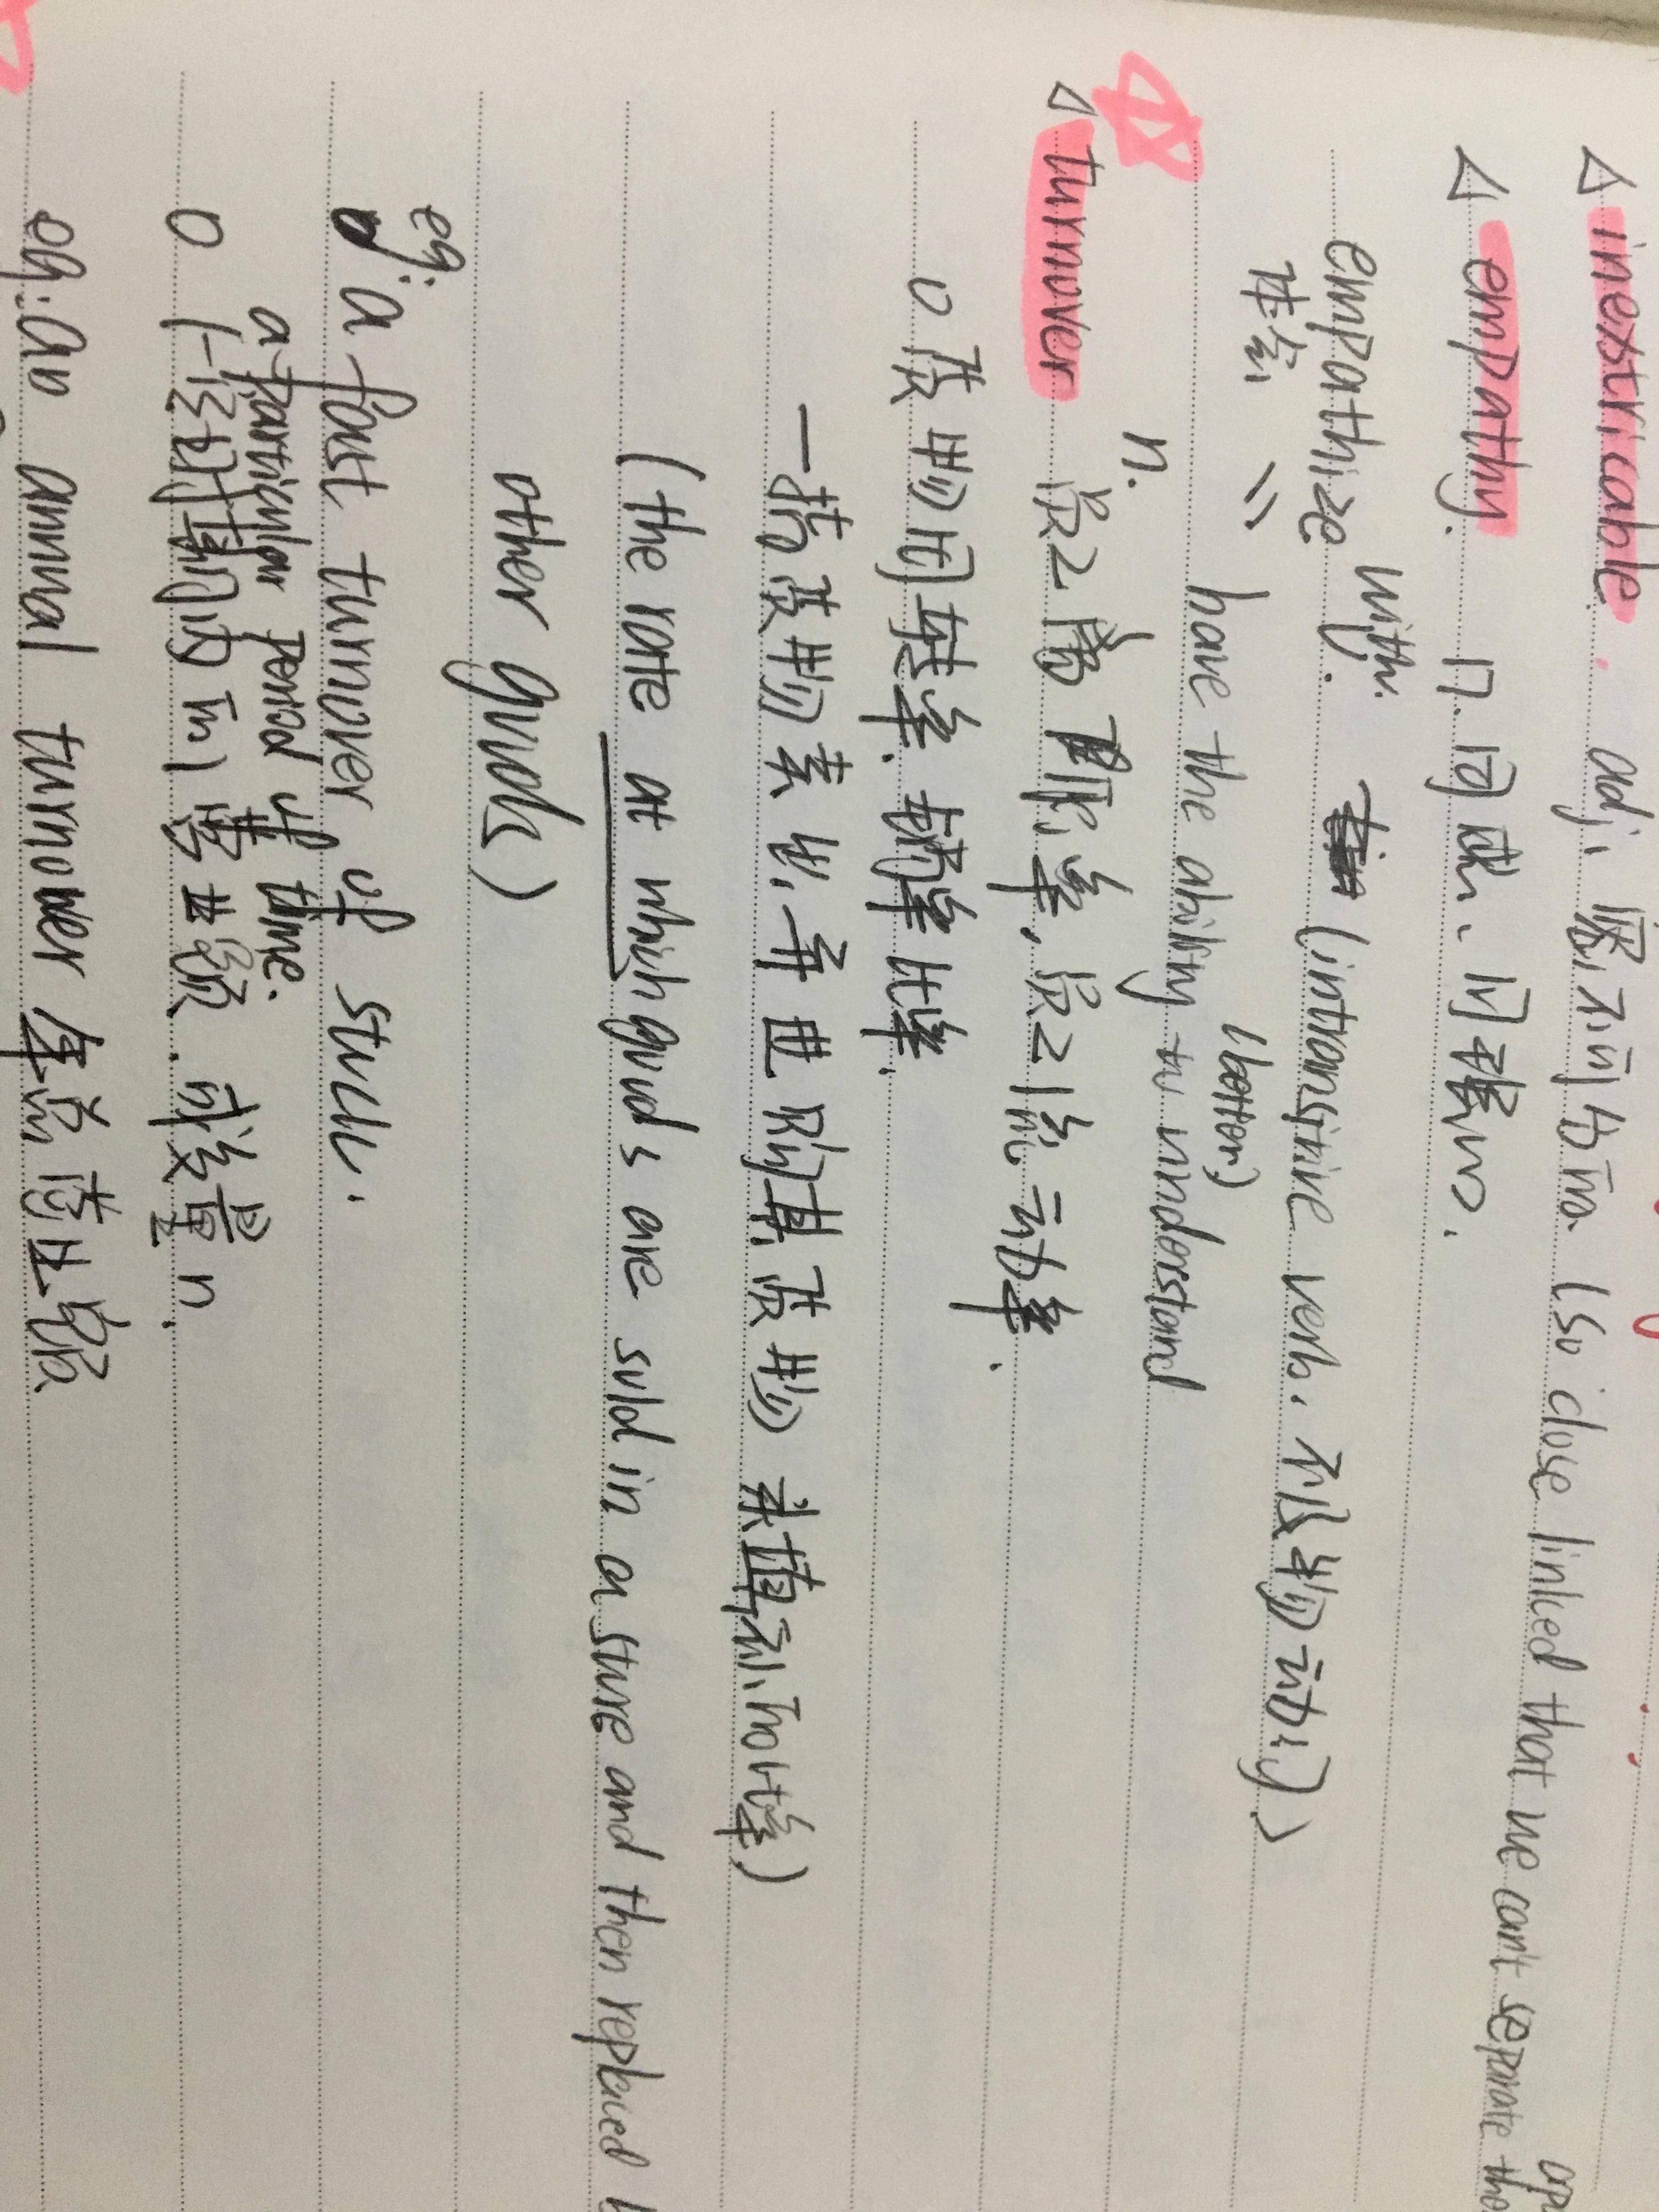 △ inextricable. adj. 密不可分的 (so close linked that we can't separate the
△ empathy. n. 同感、同理心.
empathize with. (intransitive verb. 不及物动词)
体会 have the ability to understand
(better)
△ turnover n. 员工离职率, 员工流动率.
货物周转率. 销售比率.
一指货物卖出,并进购其货物来填补的比率)
(the rate at which goods are sold in a store and then replaced b
other goods)
eg: a fast turnover of stock.
a particular period of time.
(一定时期内的) 营业额. 成交量 n.
eg: an annual turnover 年营业额